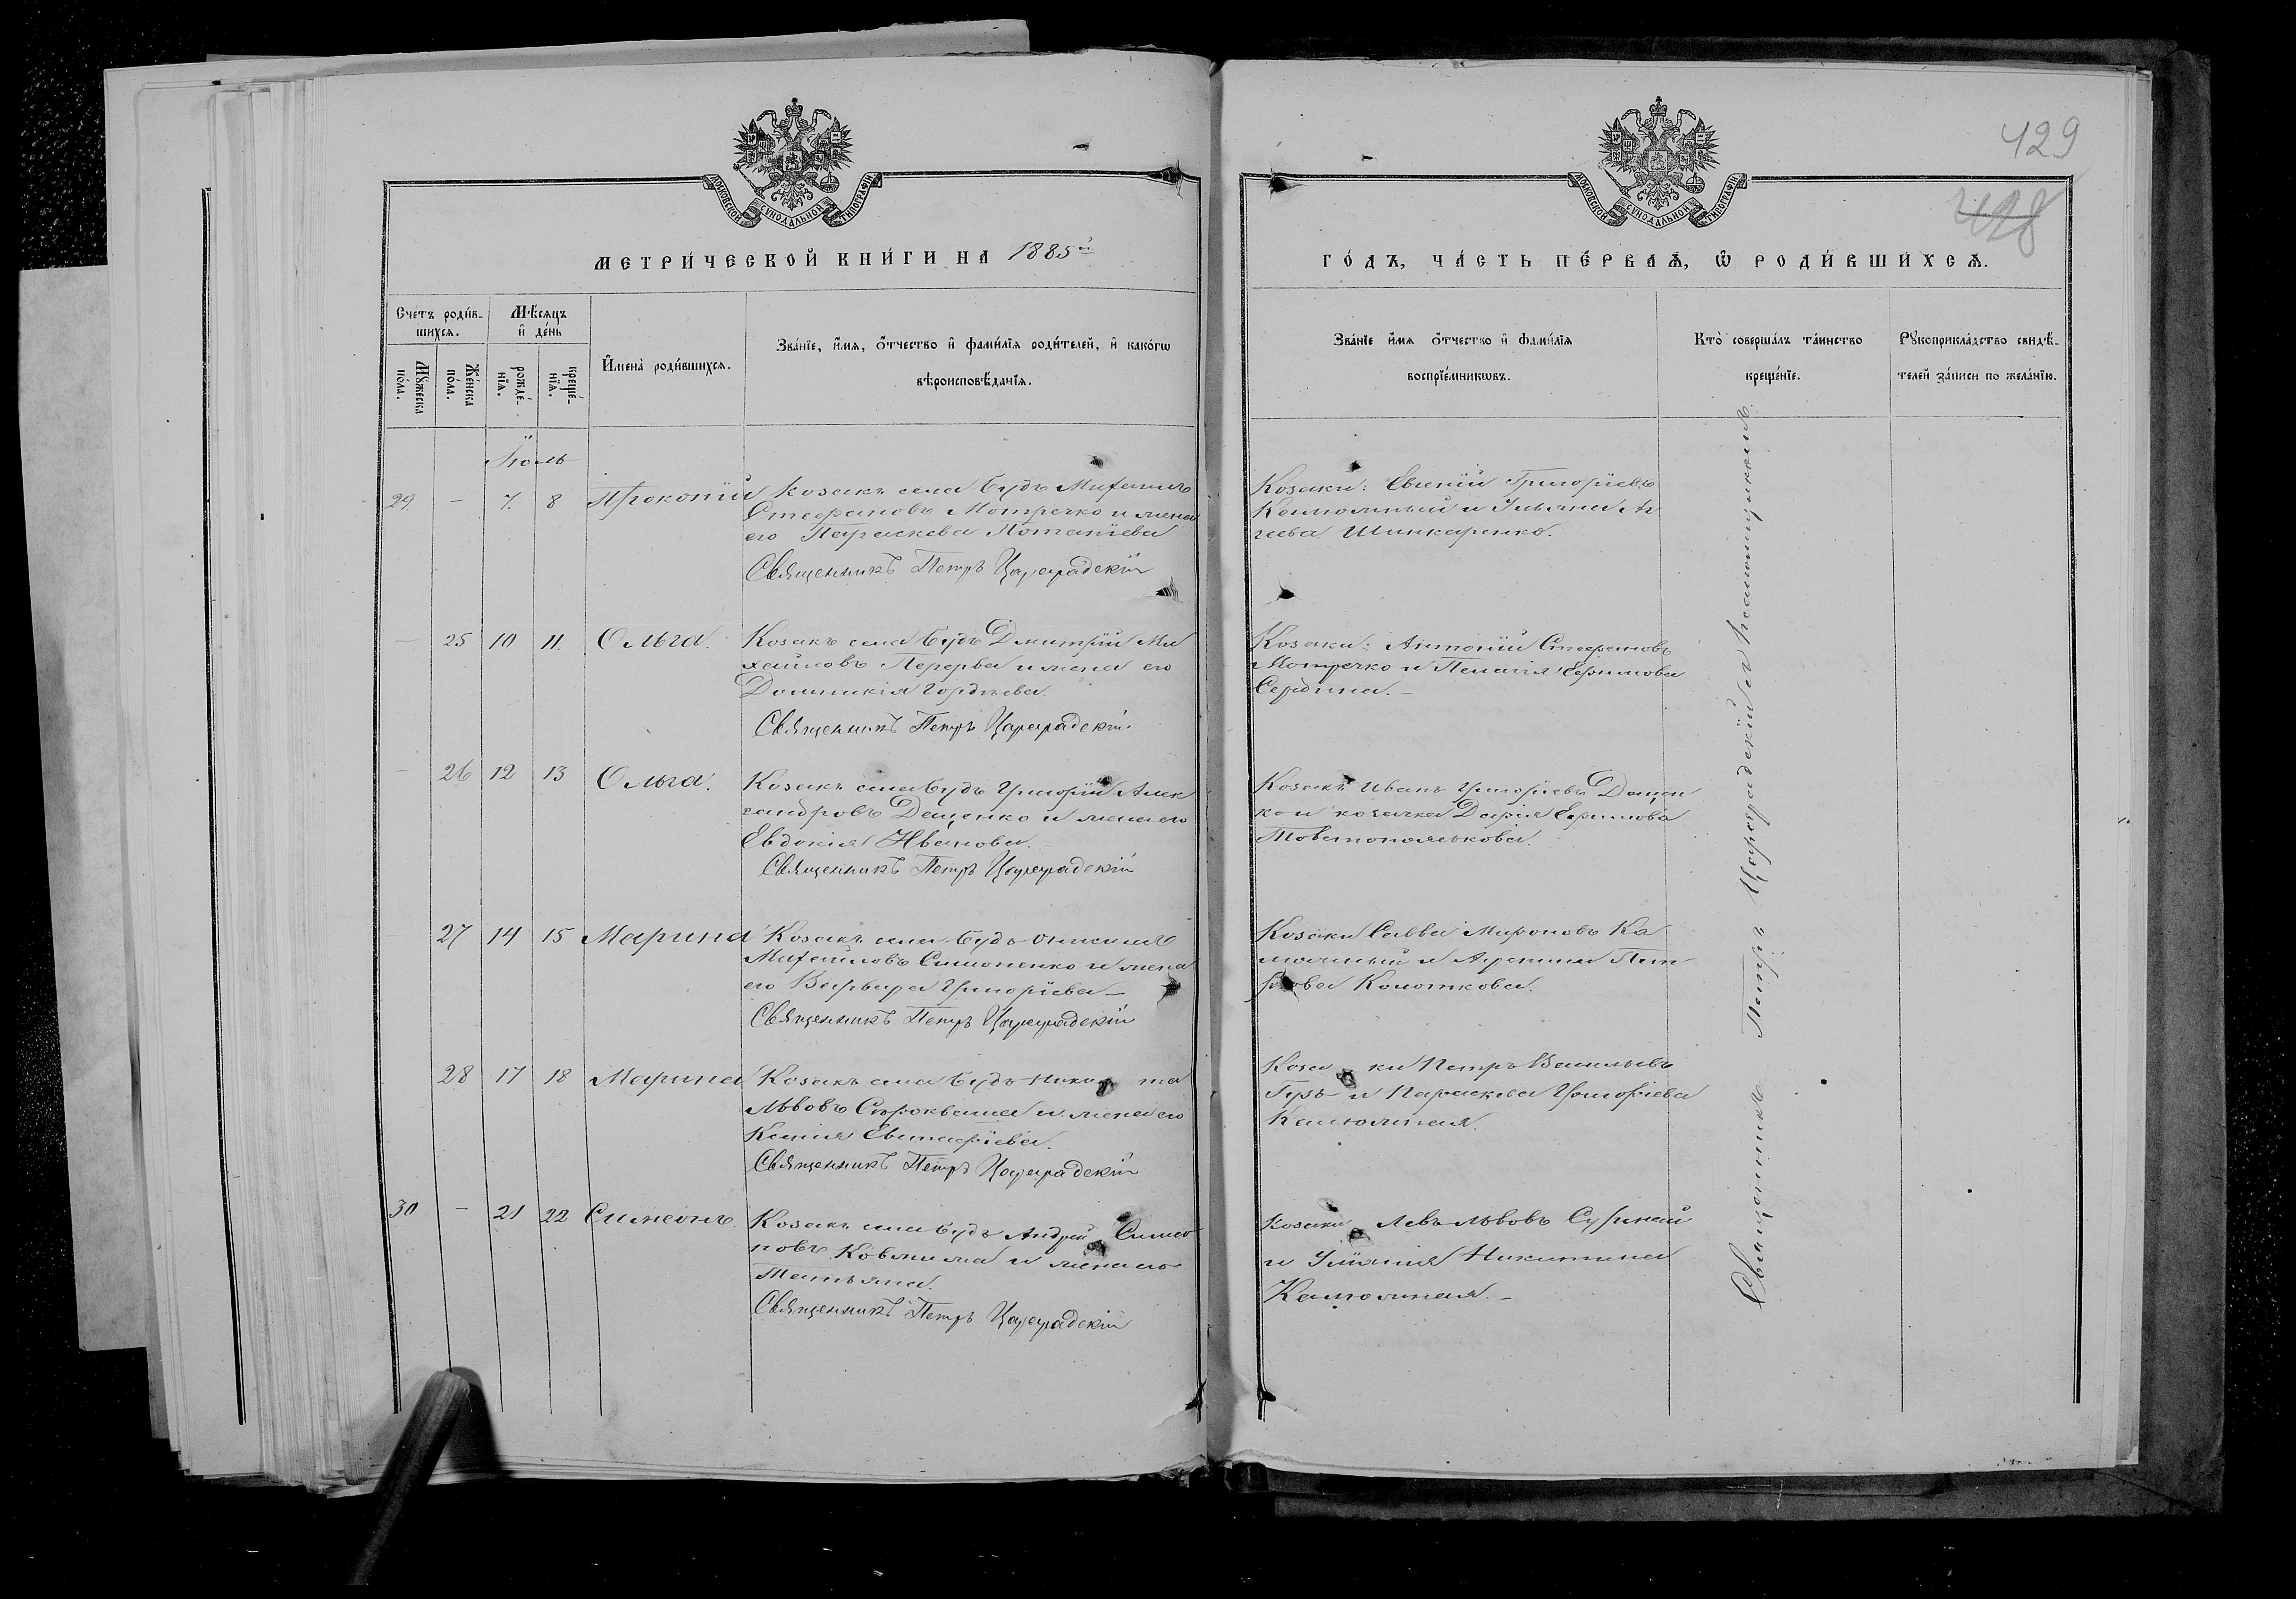 429
428
МОСКОВСКОЙ СѴНОДАЛЬНОЙ ТИПОГРАФІИ
МОСКОВСКОЙ СѴНОДАЛЬНОЙ ТИПОГРАФІИ
МЕТРИ́ЧЕСКОЙ КНИ́ГИ НА 1885й
ГО́ДЪ, ЧА́СТЬ ПЕ́РВАѦ, Ѡ РОДИ́ВШИХСѦ.
Счетъ роди́в-
шихсѧ.
Мꙋжеска по́ла.
Же́нска по́ла.
Мѣ́сѧцъ
и де́нь
рожде́-нїѧ.
креще́-нїѧ.
И҆мена̀ роди́вшихсѧ.
Зва́нїе, и҆́мѧ, ѻ҆́тчество и҆ фами́лїѧ роди́телей, и҆ како́гѡ
вѣроисповѣ́данїѧ.
Зва́нїе и҆́мѧ ѻ҆́тчество и҆ фами́лїѧ
воспрїе́мникѡвъ.
Кто̀ соверша́лъ та́инство
креще́нїе.
Рꙋкоприкла́дство свидѣ́-
телей за́писи по жела́нїю.
Іюль
29. – 7. 8 Прокопій Козакъ села Будъ Михаилъ
Стефановъ Мотречко и жена
его Параскева Потапіева
Священникъ Петръ Цареградскій
Козаки: Евгеній Григоріевъ
и Ульяна
Шинкаренко.
– 25 10 11. Ольга. Козакъ села Будъ Дмитрій Ми
хайловъ Перерва и жена его
Домникія Гордѣева.
Священникъ Петръ Цареградскій
Козаки: Антоній Стефановъ
Мотречко и Пелагія Ефимова
Сердина. –
– 26 12 13 Ольга. Козакъ села Будъ Григорій Алек
сандровъ Даценко и жена его
Евдокія Иванова.
Священникъ Петръ Цареградскій
Козакъ Иванъ Григоріевъ Дацен
ко и козачка Дарія Ефимова
27 14 15 Марина Козакъ села Будъ
Михайловъ Симоненко и жена
его Варвара Григоріева –
Священникъ Петръ Цареградскій
Козаки Савва Мироновъ Ка
и Пет-
рова Колоткова.
28 17 18 Марина Козакъ села Будъ Никита
Львовъ Сюрокваша и жена его
Ксенія Евстафіева.
Священникъ Петръ Цареградскій
Козаки Петръ Васильевъ
и Параскева Григоріева
30 – 21 22 Симеонъ Козакъ села Будъ Андрей Симео
новъ и жена его
Татьяна.
Священникъ Петръ Цареградскій
Козаки Левъ Львовъ
и Никитина
Священникъ Петръ Цареградскій съ псаломщикомъ